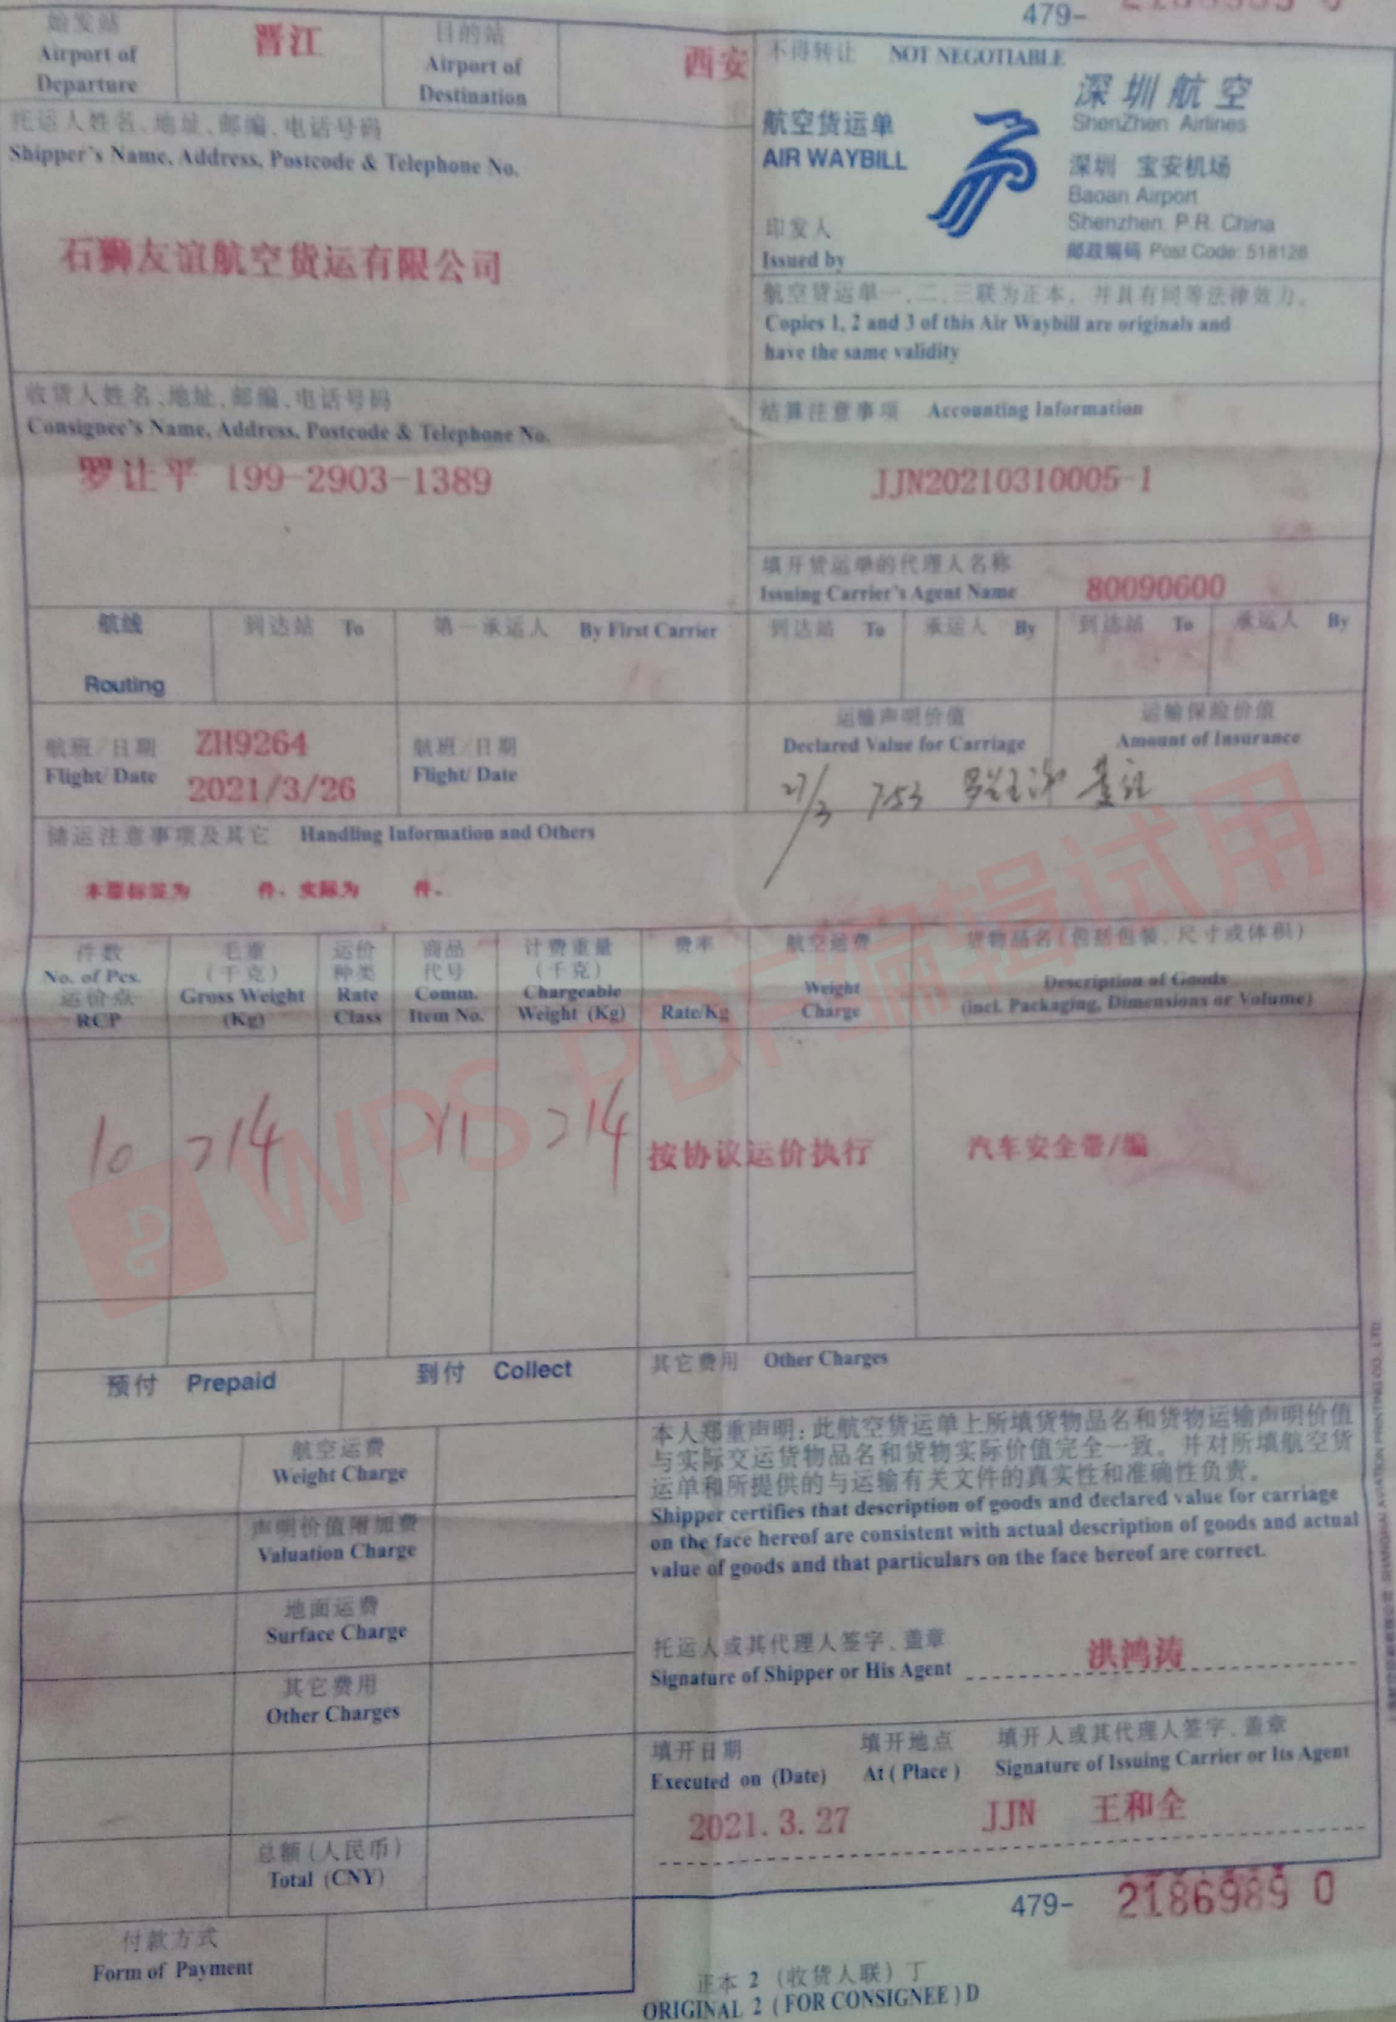 479-
始发站
Airport of
Departure
晋江
目的站
Airport of
Destination
西安
不得转让 NOT NEGOTIABLE
航空货运单
AIR WAYBILL
深圳航空
ShenZhen Airlines
深圳 宝安机场
Baoan Airport
Shenzhen, P.R. China
邮政编码 Post Code: 518128
印发人
Issued by
托运人姓名、地址、邮编、电话号码
Shipper's Name, Address, Postcode & Telephone No.
石狮友谊航空货运有限公司
航空货运单一、二、三联为正本，并具有同等法律效力。
Copies 1, 2 and 3 of this Air Waybill are originals and
have the same validity
收货人姓名、地址、邮编、电话号码
Consignee's Name, Address, Postcode & Telephone No.
罗让平 199-2903-1389
结算注意事项 Accounting Information
JJN20210310005-1
填开货运单的代理人名称
Issuing Carrier's Agent Name
80090600
航线
Routing
到达站 To
第一承运人 By First Carrier
到达站 To
承运人 By
到达站 To
承运人 By
航班/日期
Flight/Date
ZH9264
2021/3/26
航班/日期
Flight/Date
运输声明价值
Declared Value for Carriage
运输保险价值
Amount of Insurance
27/3 7:53
储运注意事项及其它 Handling Information and Others
本票标签为 件、实际为 件、
件数
No. of Pcs.
运价点
RCP
毛重
(千克)
Gross Weight
(Kg)
运价
种类
Rate
Class
商品
代号
Comm.
Item No.
计费重量
(千克)
Chargeable
Weight (Kg)
费率
Rate/Kg
航空运费
Weight
Charge
货物品名(包括包装、尺寸或体积)
Description of Goods
(incl. Packaging, Dimensions or Volume)
10
214
Y1
214
按协议运价执行
汽车安全带/编
WPS PDF编辑试用
预付 Prepaid
到付 Collect
其它费用 Other Charges
航空运费
Weight Charge
声明价值附加费
Valuation Charge
地面运费
Surface Charge
其它费用
Other Charges
总额(人民币)
Total (CNY)
付款方式
Form of Payment
本人郑重声明: 此航空货运单上所填货物品名和货物运输声明价值
与实际交运货物品名和货物实际价值完全一致。并对所填航空货
运单和所提供的与运输有关文件的真实性和准确性负责。
Shipper certifies that description of goods and declared value for carriage
on the face hereof are consistent with actual description of goods and actual
value of goods and that particulars on the face hereof are correct.
托运人或其代理人签字、盖章
Signature of Shipper or His Agent
洪鸿涛
填开日期
Executed on (Date)
填开地点
At ( Place )
填开人或其代理人签字、盖章
Signature of Issuing Carrier or Its Agent
2021.3.27 JJN 王和全
479- 2186989 0
正本 2 (收货人联) 丁
ORIGINAL 2 ( FOR CONSIGNEE ) D